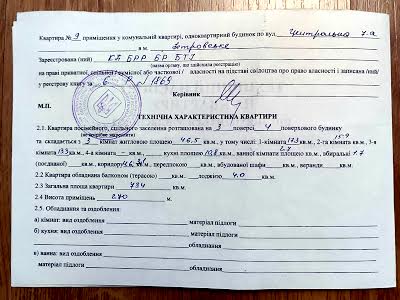 Квартира № 9 приміщення у комунальній квартирі, одноквартирний будинок по вул Центральна 7-а
в м. Петровське
Зареєстрований (ний) КП БРР БР БТІ
(назва органу, що здійснив реєстрацію)
на праві приватної, спільної / сумісної або часткової / власності на підставі свідоцтва про право власності і записана /ний/
у реєстрову книгу за № 1769
Керівник
М.П.
ТЕХНІЧНА ХАРАКТЕРИСТИКА КВАРТИРИ
2.1. Квартира посімейного, спільного заселення розташована на 3 поверсі 4 поверхового будинку
(не потрібне закреслити)
15-9
та складається з 3 кімнат житловою площею 46,5 кв.м., у тому числі: 1-кімната 17,3 кв.м., 2-га кімната кв.м., 3-я
кімната 13,3 кв.м., 4-а кімната – кв.м., кухні площею 10,8 кв.м., ванної кімнати 2,7 площею кв.м., вбиральні 1.7
(поєднаної) кв.м., коридор кв.м., передпокою кв.м., вбудованої шафи кв.м., веранди кв.м.
2.2. Квартира обладнана балконом (терасою) кв.м., лоджиею 4.0 кв.м.
2.3. Загальна площа квартири 73,4 кв.м.
2.4. Висота приміщень 270 м.
2.5. Обладнання та оздоблення:
а) кімнат: вид оздоблення матеріал підлоги
б) кухня: вид оздоблення матеріал підлоги
обладнання
в) ванна: вид оздоблення обладнання
матеріал підлоги